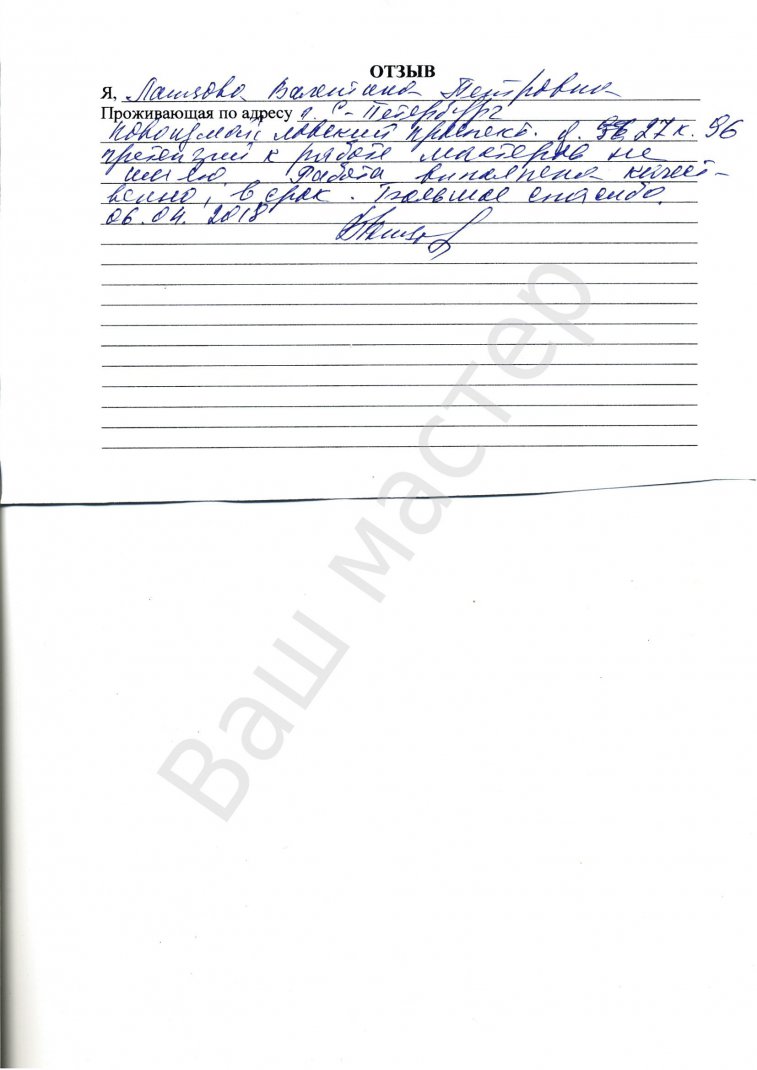 ОТЗЫВ
Я, Валентина Петровна
Проживающая по адресу г. С-Петербург
Новоизмайловский проспект. д. 27 к. 96
претензий к работе мастеров не
имею Работа выполнена качест-
венно, в срок. Большое спасибо.
06.04. 2018
Ваш мастер